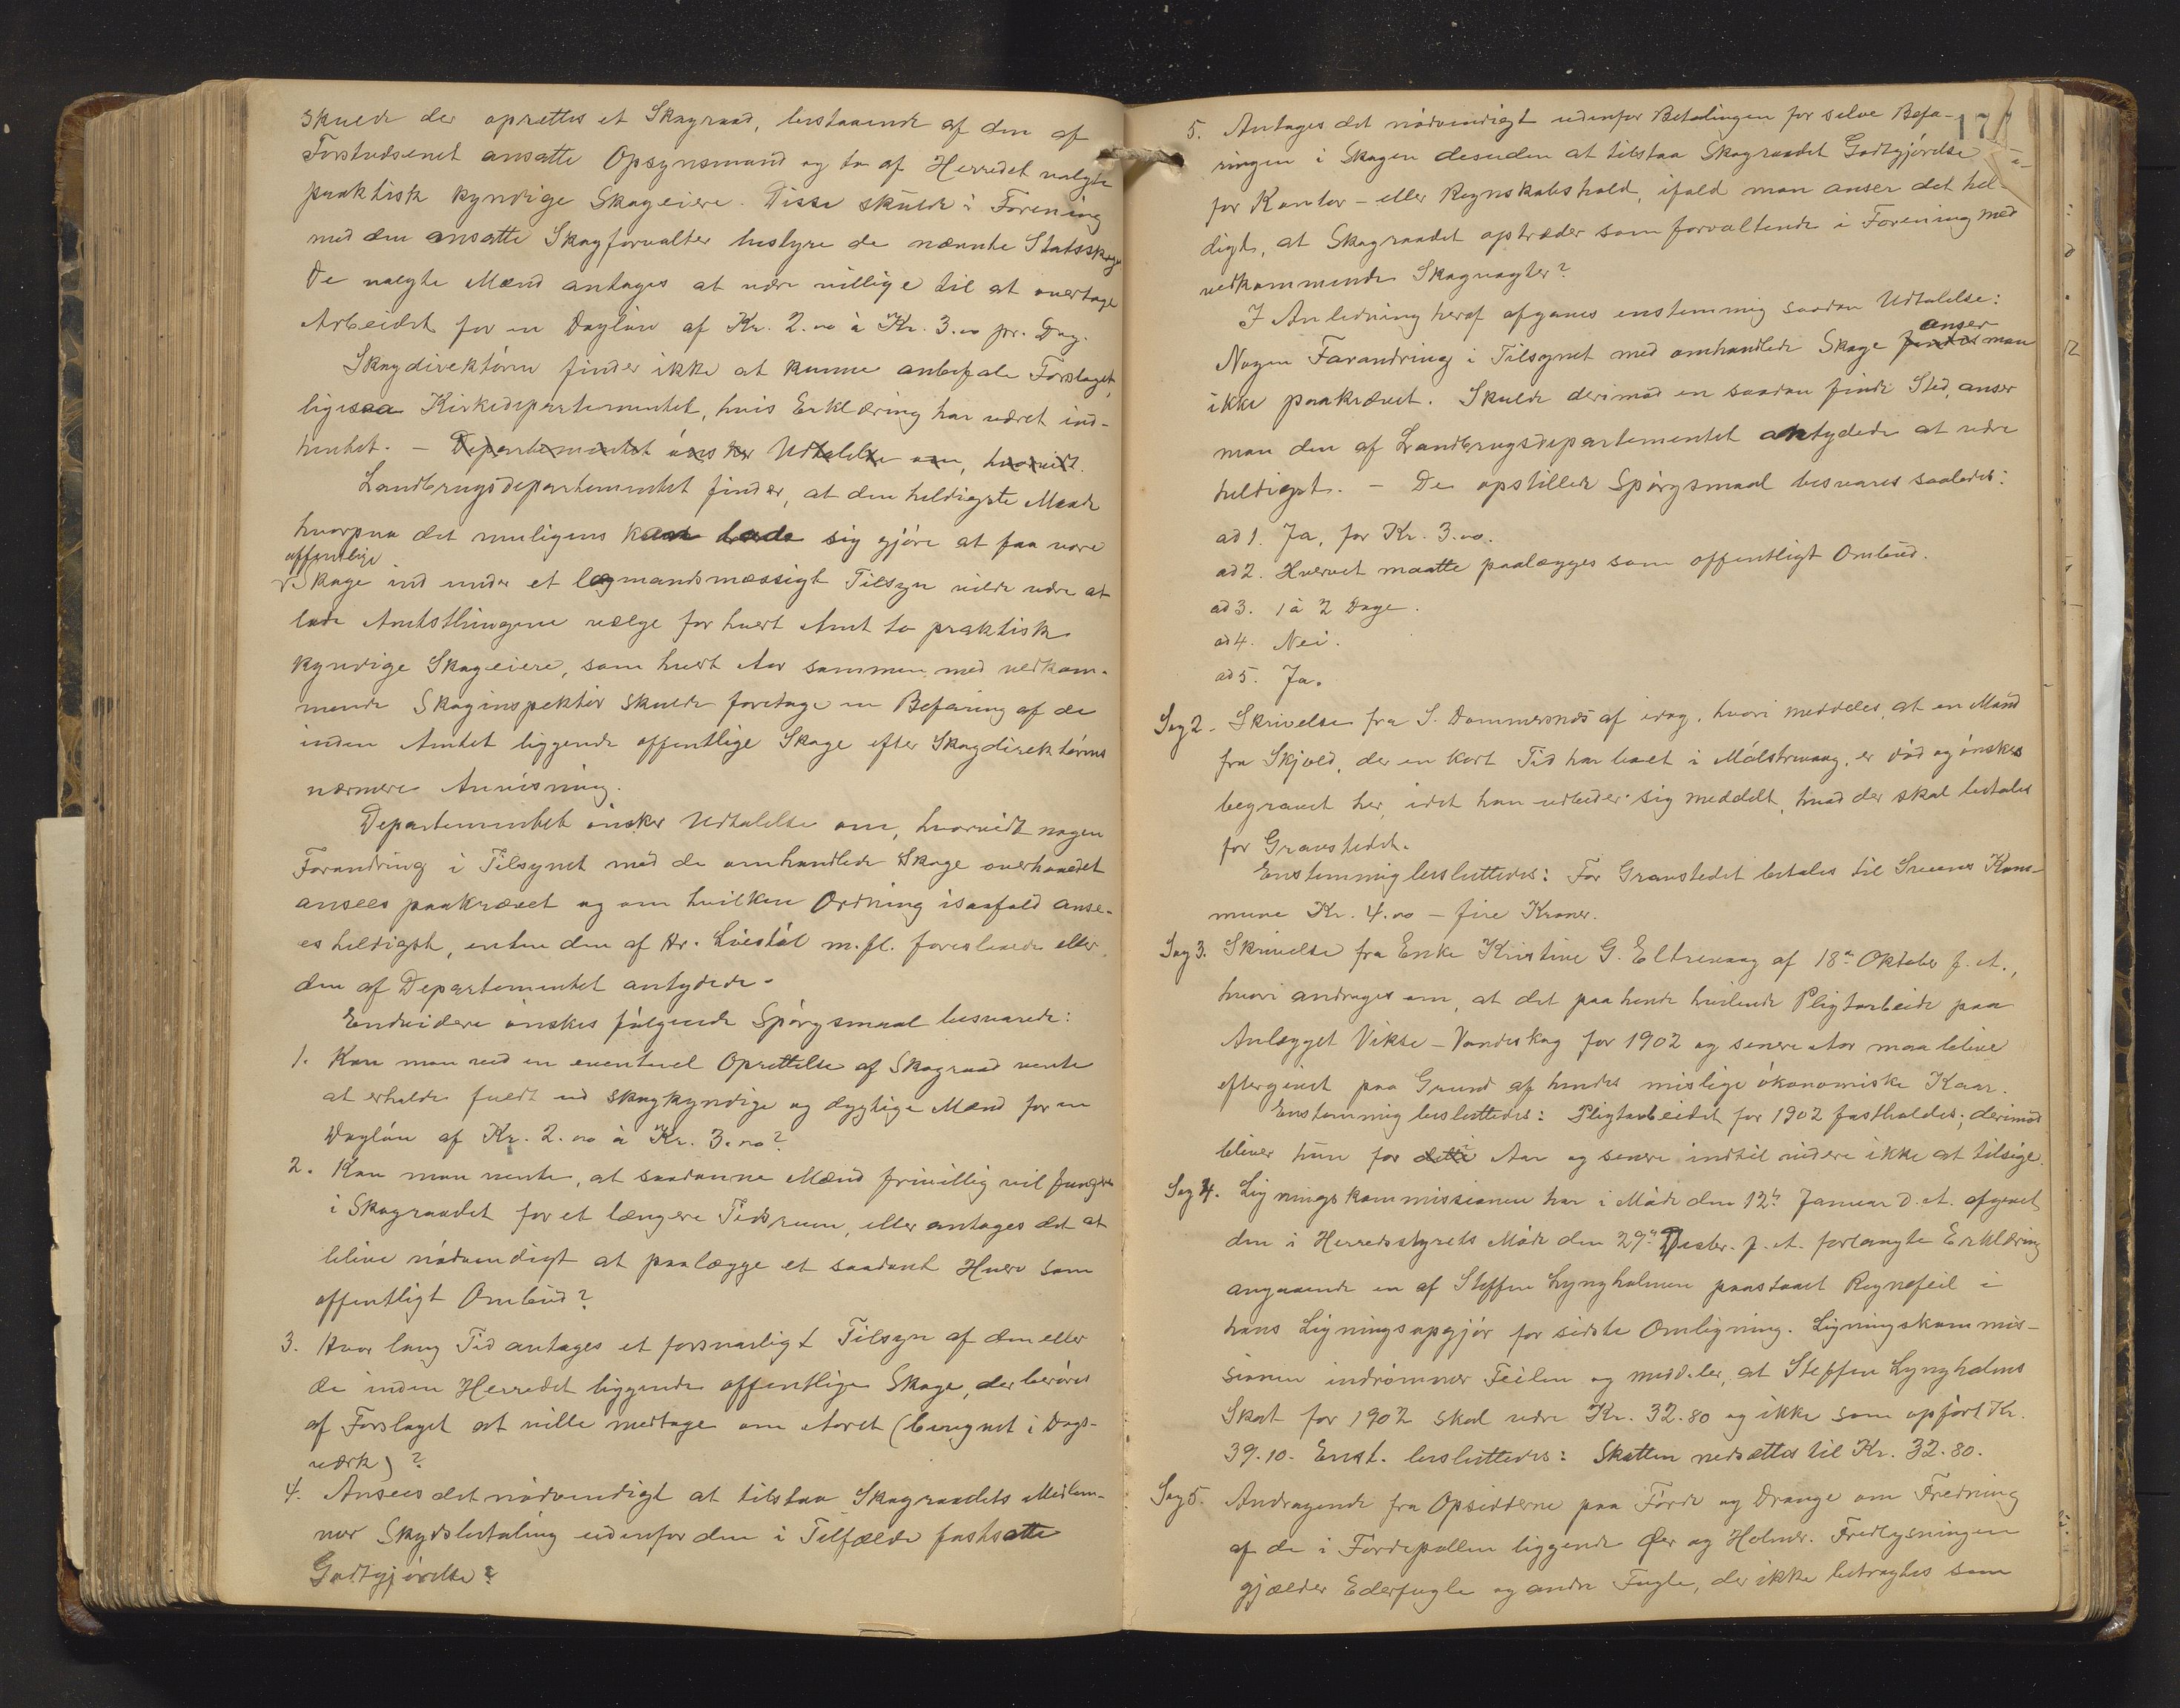 skulde der oprettes et Skograad, bestaaende af den af
Forstvæsenet ansatte Opsynsmand og to af Herredet valgte
praktisk kyndige Skogeiere. Disse skulde i Forening
med den ansatte Skogforvalter bestyre de nævnte Statsskoge
De valgte Mænd antages at være villige til at overtage
Arbeidet for en Dagløn af Kr. 2.00 à Kr. 3.00 pr. Dag.
Skogdirektøren finder ikke at kunne anbefale Forslaget,
ligesaa Kirkedepartementet, hvis Erklæring har været ind-
hentet. - Departementet ønsker Udtalelse om, hvorvidt.
Landbrugsdepartementet finder, at den heldigste Maade
hvorpaa det muligens kan lade sig gjøre at faa vore
offentlige
Skoge ind under et lægmandsmæssigt Tilsyn vilde være at
lade Amtsthingene vælge for hvert Amt to praktisk
kyndige Skogeiere, som hvert Aar sammen med vedkom-
mende Skoginspektør skulde foretage en Befaring af de
inden Amtet liggende offentlige Skoge efter Skogdirektørens
nærmere Anvisning.
Departementet ønsker Udtalelse om, hvorvidt nogen
Forandring i Tilsynet med de omhandlede Skoge overhovedet
ansees paakrævet og om hvilken Ordning isaafald anse-
es heldigst, enten den af Hr. Liestøl m.fl. foreslaaede eller
den af Departementet antydede.
Endvidere ønskes følgende Spørgsmaal besvarede:
1. Kan man ved en eventuel Oprettelse af Skograad vente
at erholde fuldt ud skogkyndige og dygtige Mænd for en
Dagløn af Kr. 2.00 à Kr. 3.00?
2. Kan man vente, at saadanne Mænd frivillig vil fungere
i Skograadet for et længere Tidsrum, eller antages det at
blive nødvendigt at paalægge et saadant Hverv som
offentligt Ombud?
3. Hvor lang Tid antages et forsvarligt Tilsyn af den eller
de inden Herredet liggende offentlige Skoge, der berøres
af Forslaget at ville medtage om Aaret (beregnet i Dags-
værk)?
4. Ansees det nødvendigt at tilstaa Skograadets Medlem-
mer Skydsbetaling udenfor den i Tilfælde fastsatte
Godtgjørelse?
171
5. Antages det nødvendigt udenfor Betalingen for selve Befa-
ringen i Skogen desuden at tilstaa Skograadet Godtgjørelse
for Kontor- eller Regnskabshold, ifald man anser det hel-
digt, at Skograadet optræder som forvaltende i Forening med
vedkommende Skogvogter?
I Anledning heraf afgaves enstemmig saadan Udtalelse:
anser
Nogen Forandring i Tilsynet med omhandlede Skoge findes man
ikke paakrævet. Skulde derimod en saadan finde Sted, anser
man den af Landbrugsdepartementet antydede at være
heldigst. - De opstillede Spørgsmaal besvares saaledes:
ad 1. Ja, for Kr. 3.00.
ad 2. Hvervet maatte paalægges som offentligt Ombud.
ad 3. 1 à 2 Dage.
ad 4. Nei.
ad 5. Ja.
Sag 2. Skrivelse fra S. Dommersnæs af idag, hvori meddeles, at en Mand
fra Skjold, der en kort Tid har boet i Mølstrevaag, er død og ønskes
begravet her, idet han udbeder sig meddelt, hvad der skal betales
for Gravstedet.
Enstemmig besluttedes: For Gravstedet betales til Sveens Kom-
mune Kr. 4.00 - fire Kroner.
Sag 3. Skrivelse fra Enke Kristine G. Eltrevaag af 18de Oktober f. A.,
hvori andrages om, at det paa hende hvilende Pligtarbeide paa
Anlægget Vikse-Vandeskog for 1902 og senere Aar maa blive
eftergivet paa Grund af hendes mislige økonomiske Kaar.
Enstemmig besluttedes: Pligtarbeidet for 1902 fastholdes; derimod
bliver hun for dette Aar og senere indtil videre ikke at tilsige.
Sag 4. Ligningskommissionen har i Møde den 12te Januar d. A. afgivet
den i Herredsstyrets Møde den 29de Decbr. f. A. forlangte Erklæring
angaaende en af Steffen Lyngholmen paastaaet Regnefeil i
hans Ligningsopgjør for sidste Omligning. Ligningskommis-
sionen indrømmer Feilen og meddeler, at Steffen Lyngholms
Skat for 1902 skal være Kr. 32.80 og ikke som opført Kr.
39.10. Enst. besluttedes: Skatten nedsættes til Kr. 32.80.
Sag 5. Andragende fra Opsidderne paa Førde og Drange om Fredning
af de i Førdepollen liggende Øer og Holmer. Fredlysningen
gjælder Ederfugle og andre Fugle, der ikke betragtes som